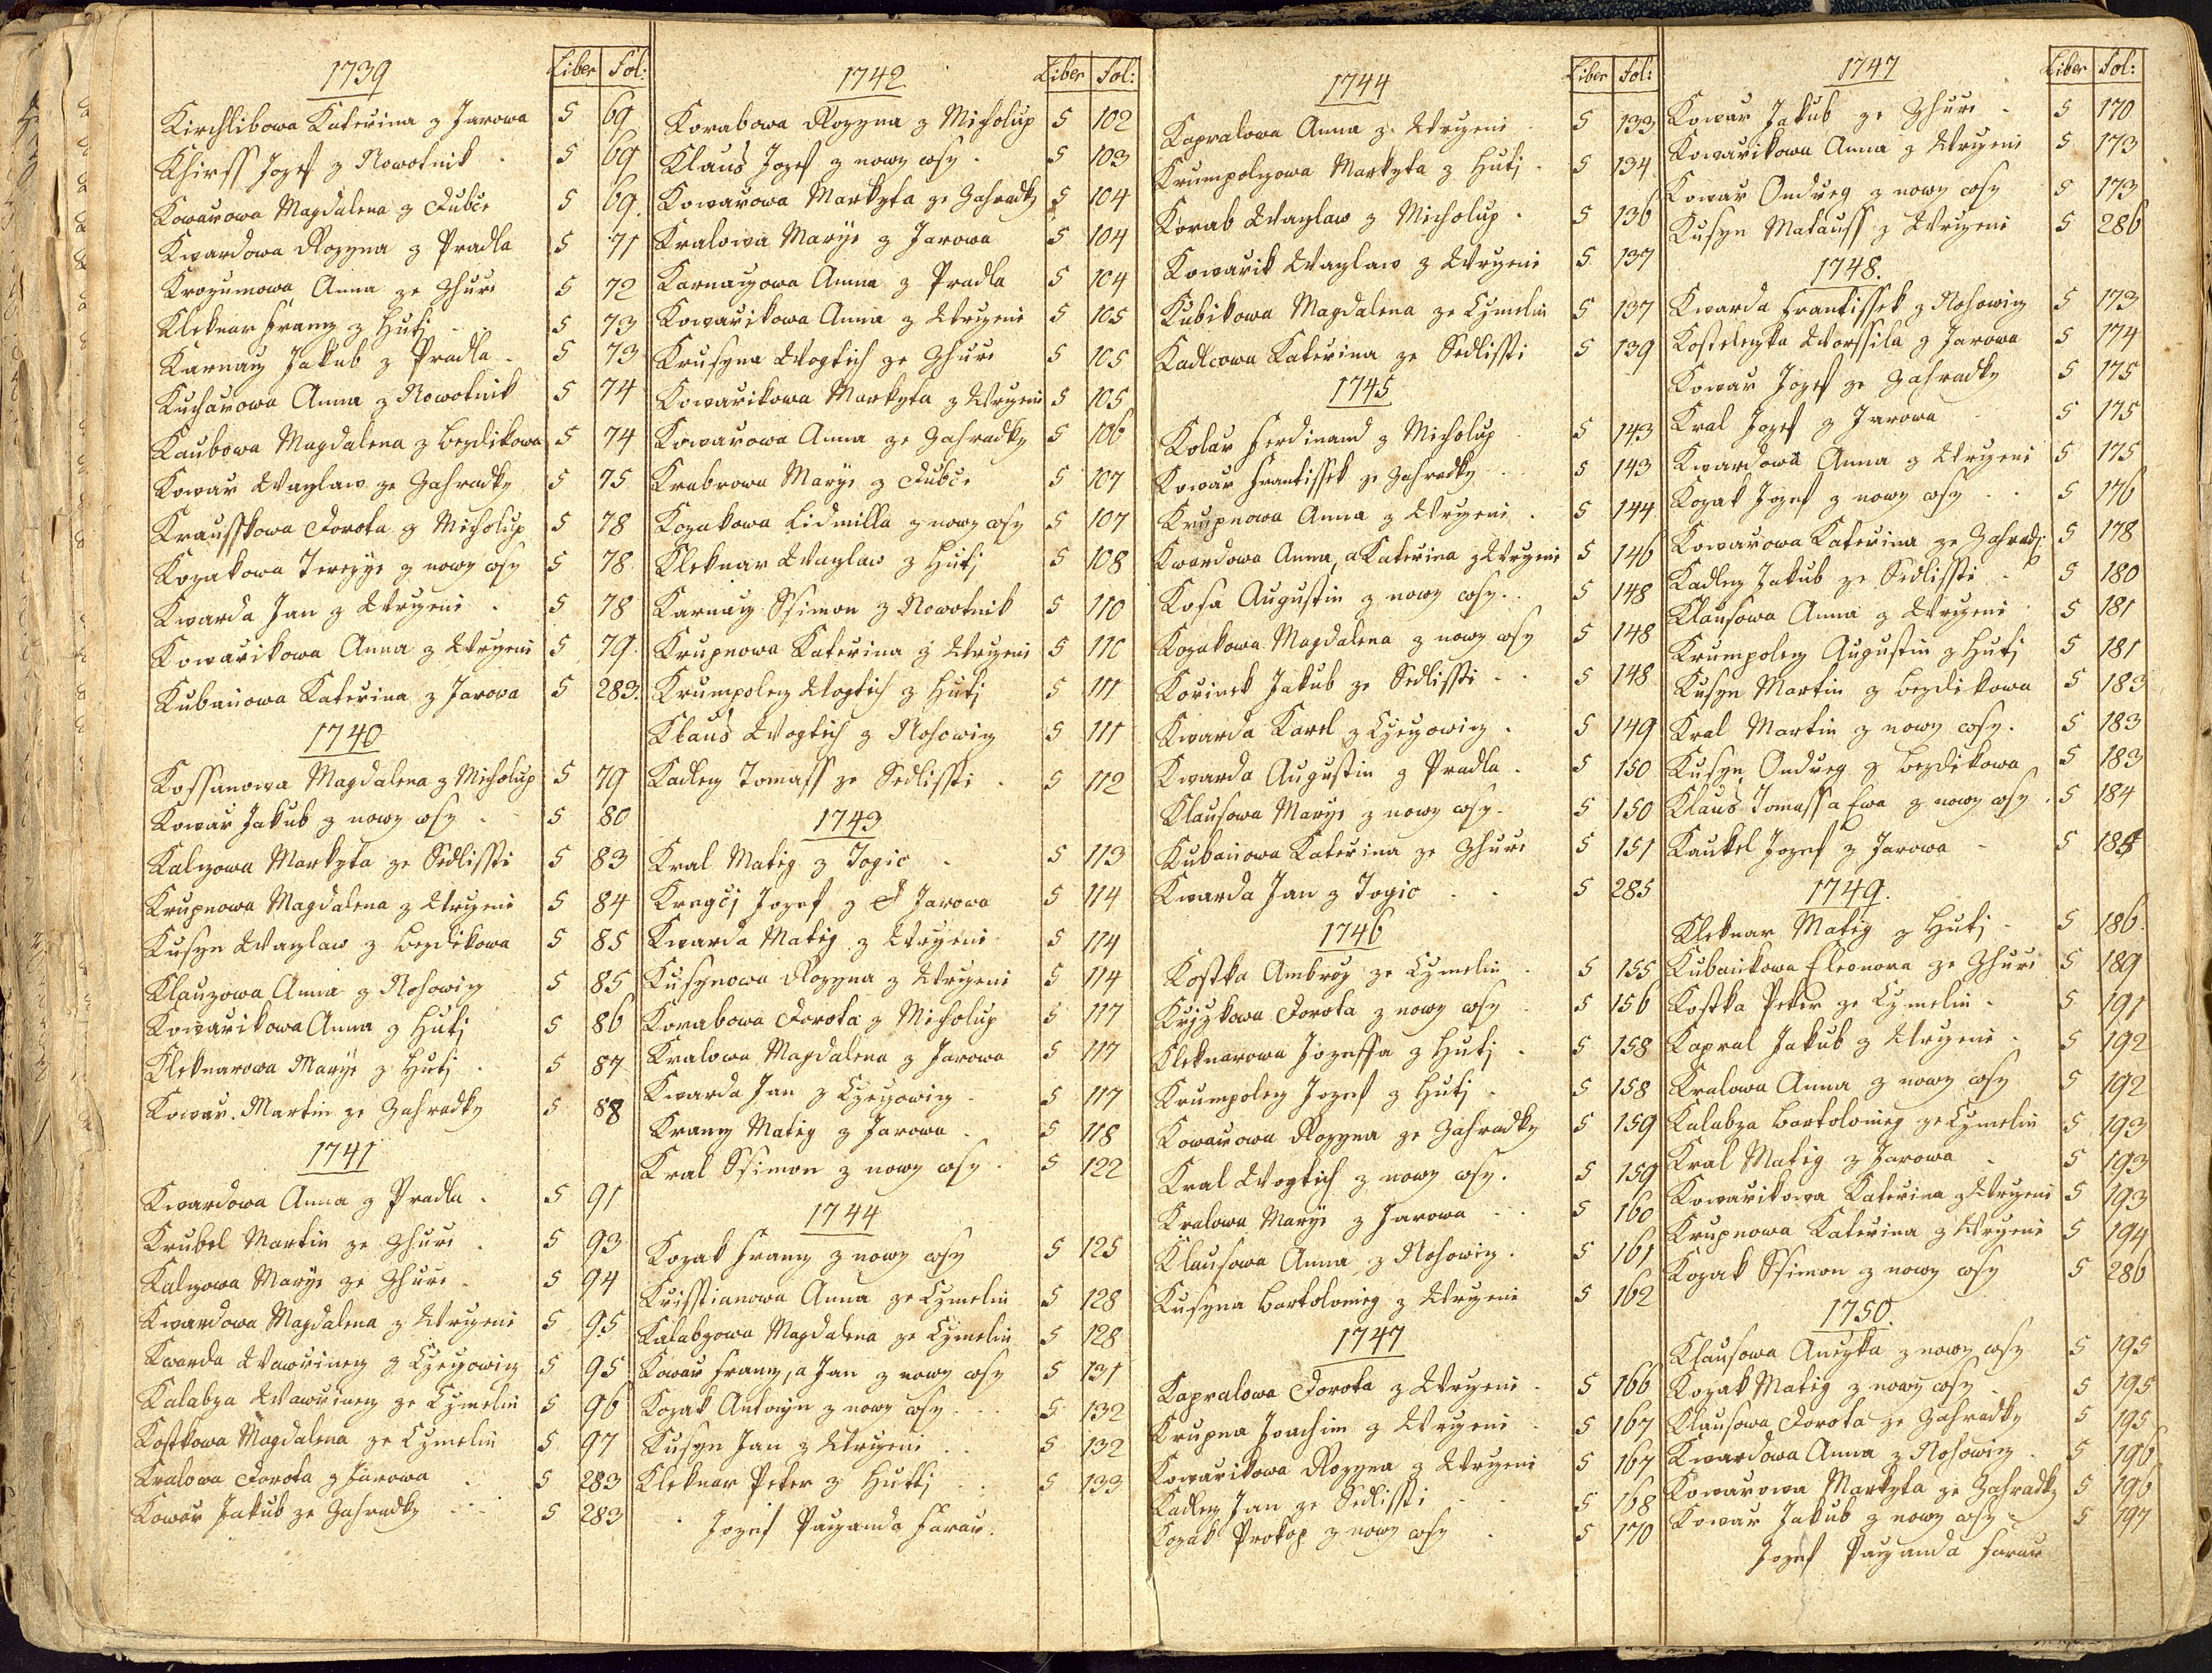 1739 Liber Fol:
Kirchlibowa Kateřina z Jarowa 5 69
Khirss Jozef z Nowotnik 5 69
Kowarowa Magdalena z Dubče 5 69.
Kwardowa Rozyna z Pradla 5 71
Krozumowa Anna ze Zhuře 5 72
Kleknar Franz z Hutj 5 73
Karnay Jakub z Pradla 5 73
Kucharowa Anna z Nowotnik 5 74
Kaubowa Magdalena z Bezdikowa 5 74
Kowar Waczlaw ze Zahradky 5 75
Krausskowa Dorota z Micholup 5 78
Kozakowa Terezye z nowy wsy 5 78
Kwarda Jan z Wrczeni 5 78
Kowařikowa Anna z Wrczeni 5 79.
Kubaňowa Kateřina z Jarova 5 283.
1740
Kossanowa Magdalena z Micholup 5 79
Kowař Jakub z nowy wsy 5 80
Kalczowa Markyta ze Sedlisti 5 83
Krupnowa Magdalena z Wrczeni 5 84
Kusyn Waczlaw z Bezdikowa 5 85
Klauzowa Anna z Nohowicz 5 85
Kowařikowa Anna z Hutj 5 86
Kleknarowa Marye z Hutj 5 87
Kowař Martin ze Zahradky 5 88
1741
Kwardowa Anna z Pradla 5 91
Krubel Martin ze Zhuře 5 93
Kalczowa Marye ze Zhuře 5 94
Kwardowa Magdalena z Wrczeni 5 95
Kwarda Wawřinecz z Czeczowicz 5 95
Kalabza Wawřinecz ze Czmelin 5 96
Kostkowa Magdalena ze Czmelin 5 97
Kralowa Dorota z Jarowa 5 283
Kowař Jakub ze Zahradky 5 283
1742 Liber Fol:
Korabowa Rozyna z Micholup 5 102
Klaus Jozef z nowy wsy 5 103
Kowařowa Markyta ze Zahradky 5 104
Kralowa Marye z Jarowa 5 104
Karnayowa Anna z Pradla 5 104
Kowařikowa Anna z Wrczeni 5 105
Krusyna Wogtich ze Zhuře 5 105
Kowařikowa Markyta z Wrczeni 5 105
Kowařowa Anna ze Zahradky 5 106
Krabrowa Marye z Dubče 5 107
Kozakowa Lidmilla z nowy wsy 5 107
Kleknar Waczlaw z Hutj 5 108
Karnay Ssimon z Nowotnik 5 110
Krupnowa Kateřina z Wrczeni 5 110
Krumpolcz Wogtich z Hutj 5 111
Klaus Wogtich z Nohowicz 5 111
Kadlecz Tomass ze Sedlissti 5 112
1743
Kral Matig z Togic 5 113
Kregčj Jozef z Jarowa 5 114
Kwarda Matig z Wrczeni 5 114
Kusynowa Rozyna z Wrczeni 5 114
Korabowa Dorota z Micholup 5 117
Kralowa Magdalena z Jarowa 5 117
Kwarda Jan z Czeczowicz 5 117
Krancz Matig z Jarowa 5 118
Kral Ssimon z nowy wsy 5 122
1744
Kozak Francz z nowy wsy 5 125
Krisstianowa Anna ze Czmelin 5 128
Kalabzowa Magdalena ze Czmelin 5 128
Kowař Francz, a Jan z nowy wsy 5 131
Kozak Antonyn z nowy wsy 5 132
Kusyn Jan z Wrczeni 5 132
Kleknar Peter z Huttj 5 133
Jozef Payanda Farař.
1744 Liber Fol:
Kapralowa Anna z Wrczeni 5 133
Krumpolczowa Markyta z Hutj 5 134
Korab Waczlaw z Micholup 5 136
Kowařik Waczlaw z Wrczeni 5 137
Kubikowa Magdalena ze Czmelin 5 137
Kadlcowa Kateřina ze Sedlissti 5 139
1745
Kolař Ferdinand z Micholup 5 143
Kowař Frantissek ze Zahradky 5 143
Krupnowa Anna z Wrczeni 5 144
Kwardowa Anna, a Kateřina z Wrczeni 5 146
Kosa Augustin z nowy wsy 5 148
Kozakowa Magdalena z nowy wsy 5 148
Kořinek Jakub ze Sedlissti 5 148
Kwarda Karel z Czeczowicz 5 149
Kwarda Augustin z Pradla 5 150
Klausowa Marye z nowy wsy 5 150
Kubaňowa Kateřina ze Zhuře 5 151
Kwarda Jan z Togic 5 285
1746
Kostka Ambrož ze Czmelin 5 155
Křjzkowa Dorota z nowy wsy 5 156
Kleknarowa Jozeffa z Hutj 5 158
Krumpolcz Jozef z Hutj 5 158
Kowařowa Rozyna ze Zahradky 5 159
Kral Wogtich z nowy wsy 5 159
Kralowa Marye z Jarowa 5 160
Klausowa Anna z Nohowicz 5 161
Kusyna Bartolomieg z Wrczeni 5 162
1747
Kapralowa Dorota z Wrczeni 5 166
Krupna Joachim z Wrczeni 5 167
Kowařikowa Rozyna z Wrczeni 5 167
Kadlecz Jan ze Sedlissti 5 168
Kozak Prokop z nowy wsy 5 170
1747 Liber Fol:
Kowař Jakub ze Zhuře 5 170
Kowařikowa Anna z Wrczeni 5 173
Kowař Ondřeg z nowy wsy 5 173
Kusyn Matauss z Wrczeni 5 286
1748.
Kwarda Frantissek z Nohowicz 5 173
Kosteleczka Worssila z Jarowa 5 174
Kowař Jozef ze Zahradky 5 175
Kral Jozef z Jarowa 5 175
Kwardowa Anna z Wrczeni 5 175
Kozak Jozef z nowy wsy 5 176
Kowařowa Kateřina ze Zahradj 5 178
Kadlecz Jakub ze Sedlissti 5 180
Klausowa Anna z Wrczeni 5 181
Krumpolcz Augustin z Hutj 5 181
Kusyn Martin z Bezdikowa 5 183
Kral Martin z nowy wsy 5 183
Kusyn Ondřeg z Bezdikowa 5 183
Klaus Tomass a Ewa z nowy wsy 5 184
Kaukel Jozef z Jarowa 5 185
1749.
Kleknar Matig z Hutj 5 186.
Kubaňkowa Eleonora ze Zhuře 5 189
Kostka Peter ze Czmelin 5 191
Kapral Jakub z Wrczeni 5 192
Kralowa Anna z nowy wsy 5 192
Kalabza Bartolomieg ze Czmelin 5 193
Kral Matig z Jarowa 5 193
Kowařikowa Kateřina z Wrczeni 5 193
Krupnowa Kateřina z Wrczeni 5 194
Kozak Ssimon z nowy wsy 5 286
1750.
Klausowa Anczka z nowy wsy 5 195
Kozak Matig z nowy wsy 5 195
Klausowa Dorota ze Zahradky 5 195
Kwardowa Anna z Nohowicz 5 196
Kowařowa Markyta ze Zahradky 5 196
Kowař Jakub z nowy wsy 5 197
Jozef Payanda Farař